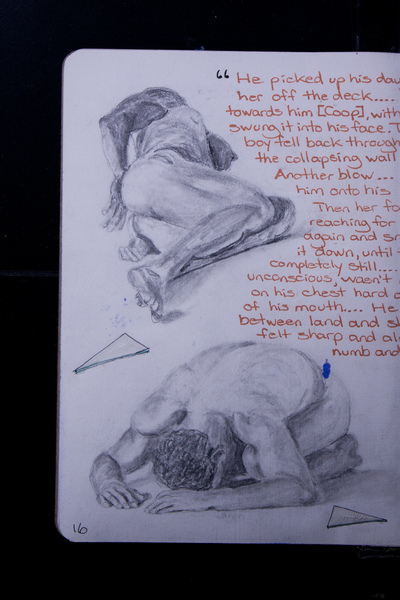 “ He picked up his dau
her off the deck....
towards him [Coop], with
swung it into his face. T
boy fell back through
the collapsing wall
Another blow...
him onto his
Then her fo
reaching for
again and sm
it down, until
completely still....
unconscious, wasn't
on his chest hard a
of his mouth.... He
between land and sk
felt sharp and al
numb and
16